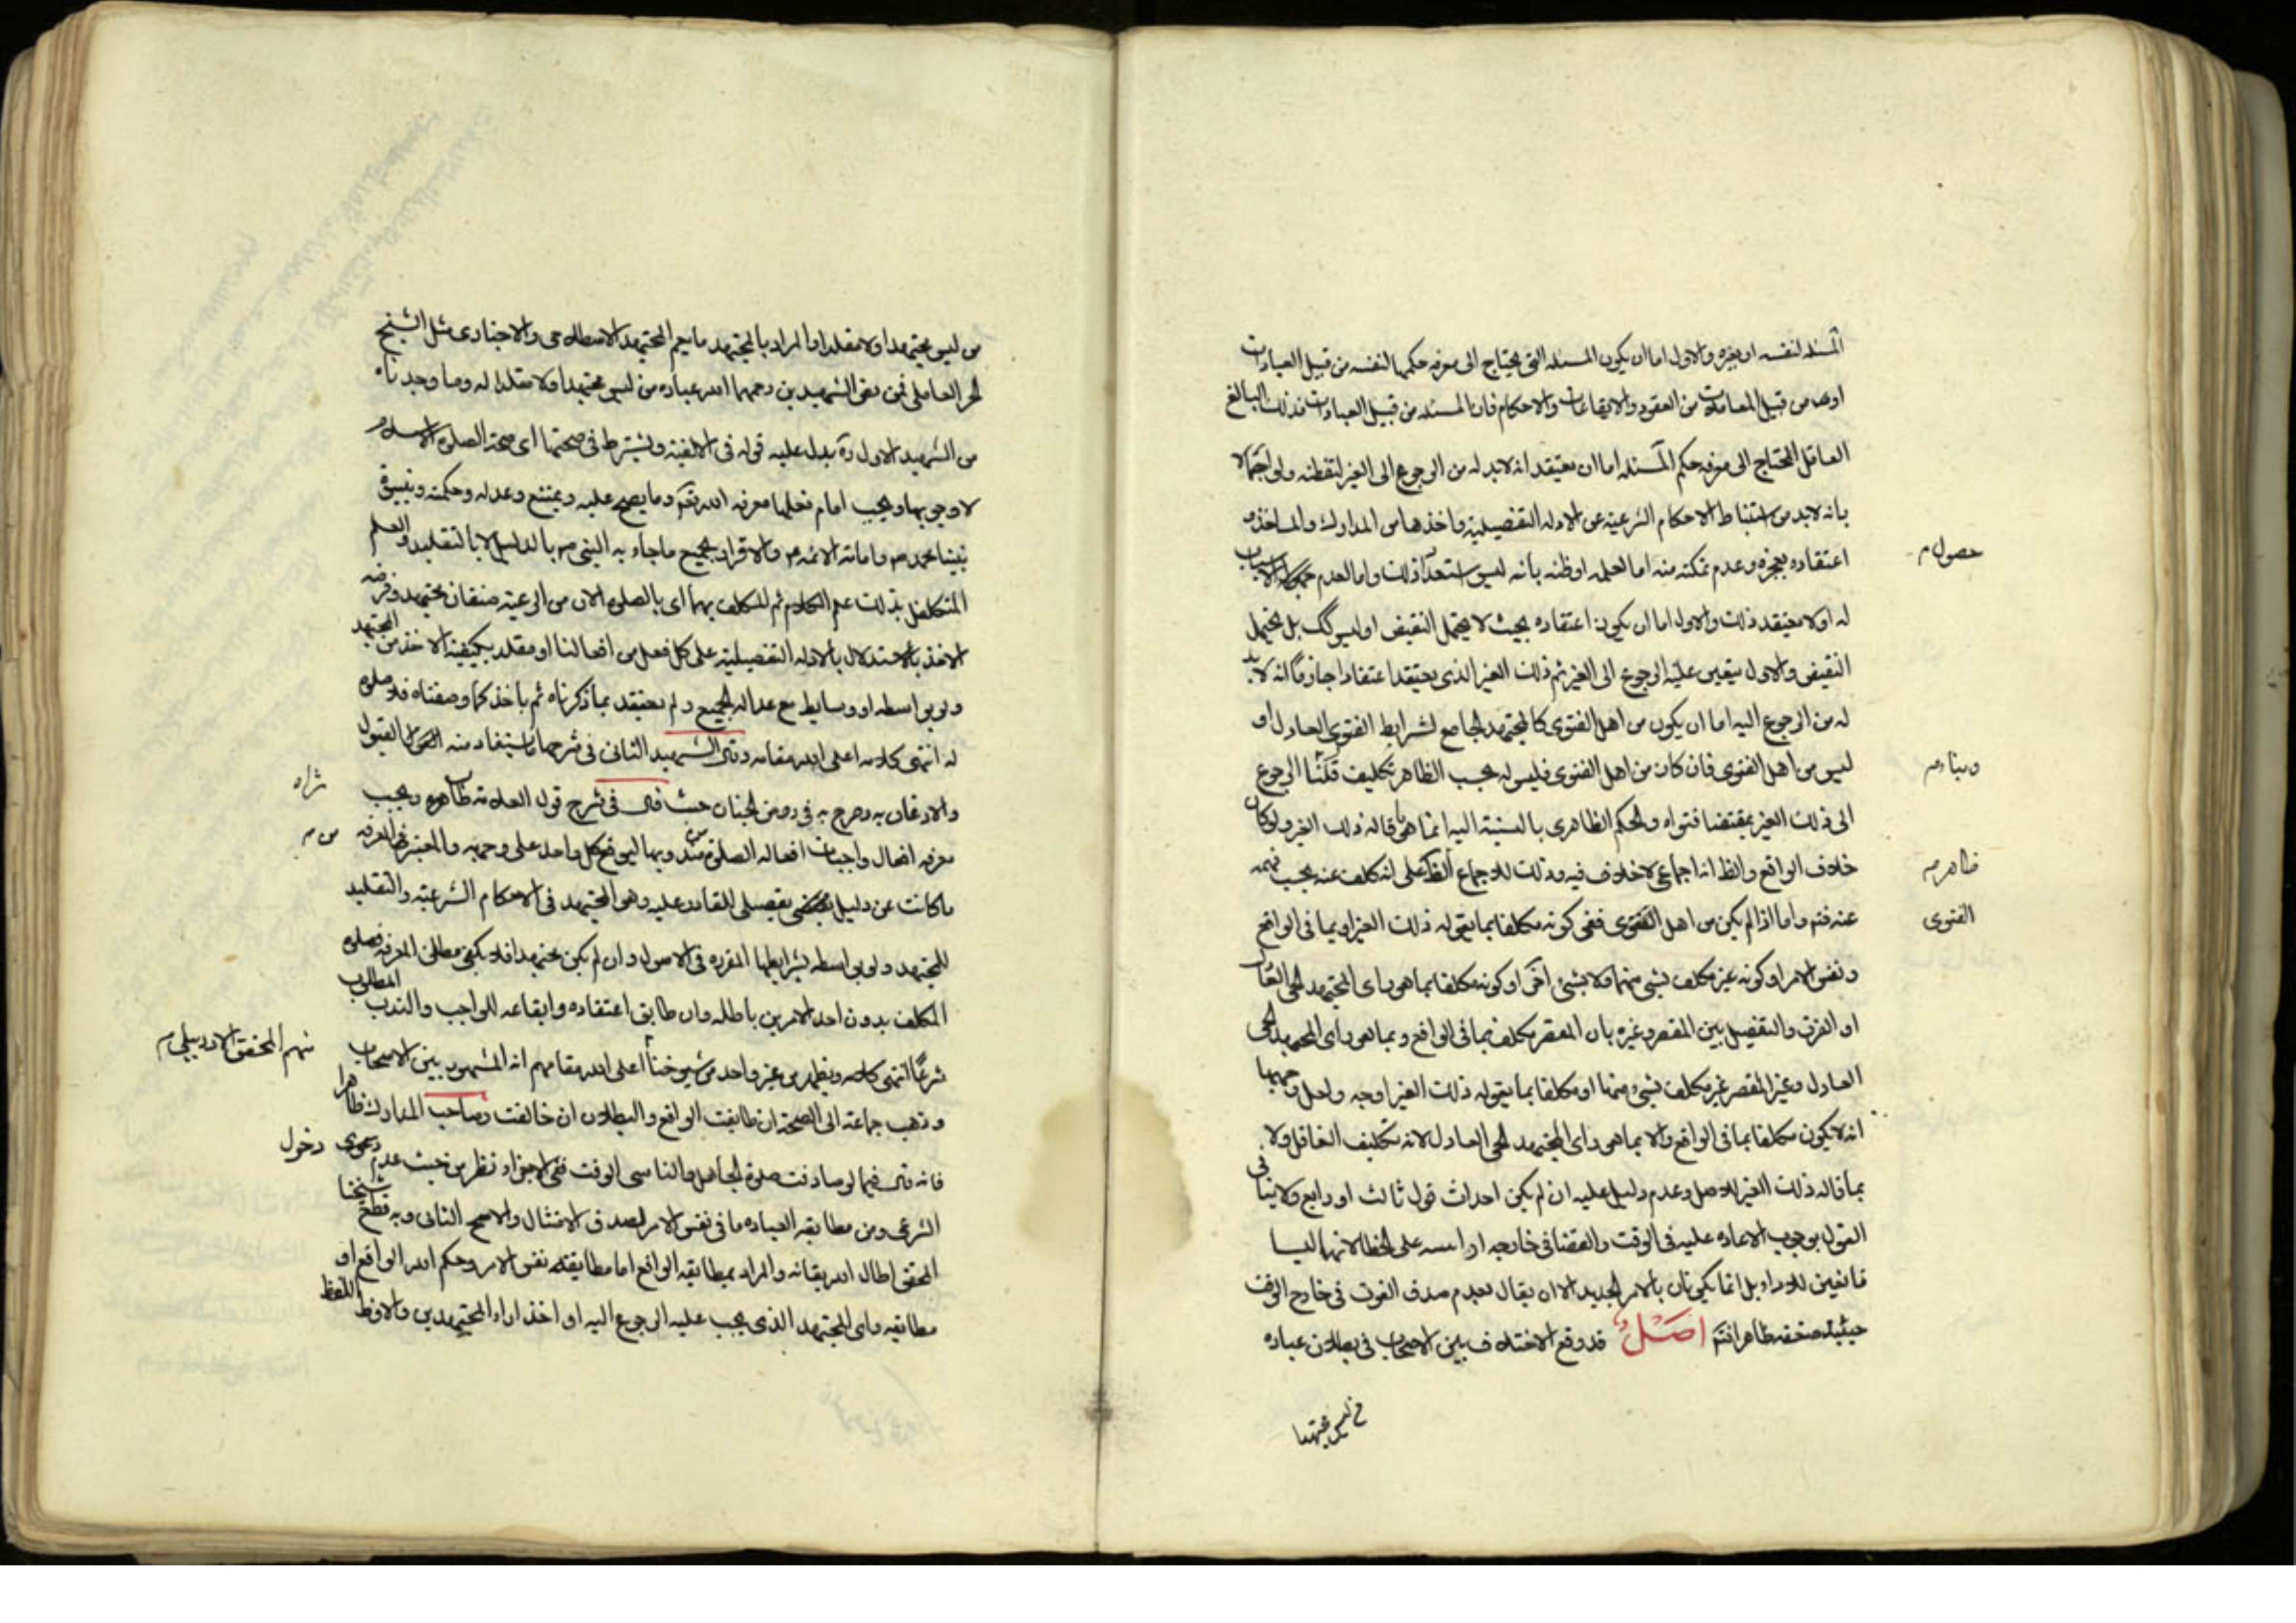 المسئلة لنفسه او لغيره والاول اما ان يكون المسئله التى يحتاج الى معرفه حكمها لنفسه من قبيل العبادات
او من قبيل المعاملات من العقود والايقاعات والاحكام فان المسئله من قبيل العبادات فذلك البالغ
العاقل المحتاج الى معرفه حكم المسئله اما ان يعتقد انه لابد له من الرجوع الى الغير لتفطنه ولو اجمالا
بانه لابد من استنباط الاحكام الشرعيه عن الادله التفصيليه واخذها من المدارك والماخذ و
حصول م
اعتقاده بعجزه وعدم تمكنه منه اما لعلمه او ظنه بانه ليس استعداد ذلك واما لعدم الاسباب
له او لا يعتقد ذلك والاول اما ان يكون اعتقاده بحيث لا يحتمل النقيض او ليس كك بل يحتمل
النقيض والاول يتعين عليه الرجوع الى الغير ثم ذلك الغير الذى يعتقد اعتقادا جازما انه لابد
له من الرجوع اليه اما ان يكون من اهل الفتوى كالمجتهد الجامع لشرايط الفتوى العادل او
ليس من اهل الفتوى فان كان من اهل الفتوى فليس له بحسب الظاهر تكليف الرجوع
الى ذلك الغير بمقتضا فتواه والحكم الظاهرى بالنسبة اليه انما هو ما قاله ذلك الغير ولو كان
خلاف الواقع والظ انه اجماعى لاخلاف فيه وذلك للاجماع على انه كلف عنه بحسب فهمه
ظاهر م
عنه فتم واما اذا لم يكن من اهل الفتوى ففى كونه مكلفا بما يقوله ذلك الغير او بما فى الواقع
الفتوى
ونفس الامر او كونه غير مكلف بشئ منهما ولا بشئ اخر او كونه مكلفا بما هو راى المجتهد الحى
او الفرق والتفصيل بين المقصر وغيره بان المقصر مكلف بما فى الواقع وبما هو راى المجتهد الحى
العادل وغير المقصر غير مكلف بشئ منهما او مكلفا بما يقوله ذلك الغير اوجه ولعل وجهها
انه لا يكون مكلفا بما فى الواقع ولا بما هو راى المجتهد الحى العادل لانه تكليف الغافل ولا
بما قاله ذلك الغير للاصل وعدم دليل عليه ان لم يكن احداث قول ثالث او رابع ولا ينافى
القول بوجوب الاعاده عليه فى الوقت والقضا فى خارجه لانهما ليسا
تابعين للاداء بل انما يكونان بالامر الجديد الا ان يقال بعدم صدق الفوت فى خارج الوقت
حينئذ ظاهرا فتم اصل قد وقع الاختلاف بين الاصحاب فى بطلان عباده
من ليس مجتهدا
من ليس مجتهدا ولا مقلدا والمراد بالمجتهد ما يعم المجتهد الاصطلاحى والاخبارى مثل الشيخ
الحر العاملى فعن بعض الشهيدين رحمهما الله عباده من ليس مجتهدا ولا مقلدا له وما وجدناه
من الشهيد الاول ره يدل عليه قوله فى الالفيه ويشترط فى صحتها اى صحة الصلوه الاسلام
لا وجوبها ويجب امام فعلها معرفه الله تعم وما يصح عليه ويمتنع وعدله وحكمته ونبوة
نبينا محمد ص وامامة الائمه ع والاقرار بجميع ماجاء به النبى ص بالدليل لا بالتقليد والعلم
المتكفل بذلك علم الكلام ثم المكلف بها اى بالصلوه الان من الرعيه صنفان مجتهد وفرضه
الاخذ بالاستدلال بالادله التفصيليه على كل فعل من افعالنا او مقلد يكفيه الاخذ من المجتهد
ولو بواسطه او وسايط مع عدالة الجميع ولم يعتقد بما ذكرناه ثم ياخذ كما وصفناه فلا صلوه
له انتهى كلامه اعلى الله مقامه وقال الشهيد الثانى فى شرحها ما يستفاد منه القبول
والاذعان به وصرح به فى روض الجنان حيث قال فى شرح قول العلامه طاب ثراه ويجب
معرفه افعال واجبات افعاله الصلوة من مندوبها ليوقع كل واحد على وجهه والمعتبر من المعرفه
من م
ما كانت عن دليل تفصيلى للقادر عليه وهو المجتهد فى الاحكام الشرعيه والتقليد
للمجتهد ولو بواسطه بشرايطها المقرره فى الاصول وان لم يكن مجتهدا فلا يكفى مطلق المعرفه فصلوه
المكلف بدون احد الامرين باطله وان طابق اعتقاده وايقاعه للواجب والندب المطلوب
شرعا انتهى كلامه ويظهر من غير واحد من شيوخنا اعلى الله مقامهم انه المشهور بين الاصحاب
منهم المحقق الاردبيلى م
وذهب جماعة الى الصحة ان طابقت الواقع والبطلان ان خالفت وصاحب المدارك ظاهرا
فانه قال فيما لو صادفت صلوة الجاهل والناسى الوقت ففى الاجزاء نظر من حيث عدم دخول
الشرعى ومن مطابقه العباده ما فى نفس الامر لصدق الامتثال والاصح الثانى وبه قطع شيخنا
المحقق اطال الله بقائه والمراد بمطابقه الواقع اما مطابقته نفس الامر وحكم الله الواقع او
مطابقه راى المجتهد الذى يجب عليه الرجوع اليه او اخذ اراء المجتهدين